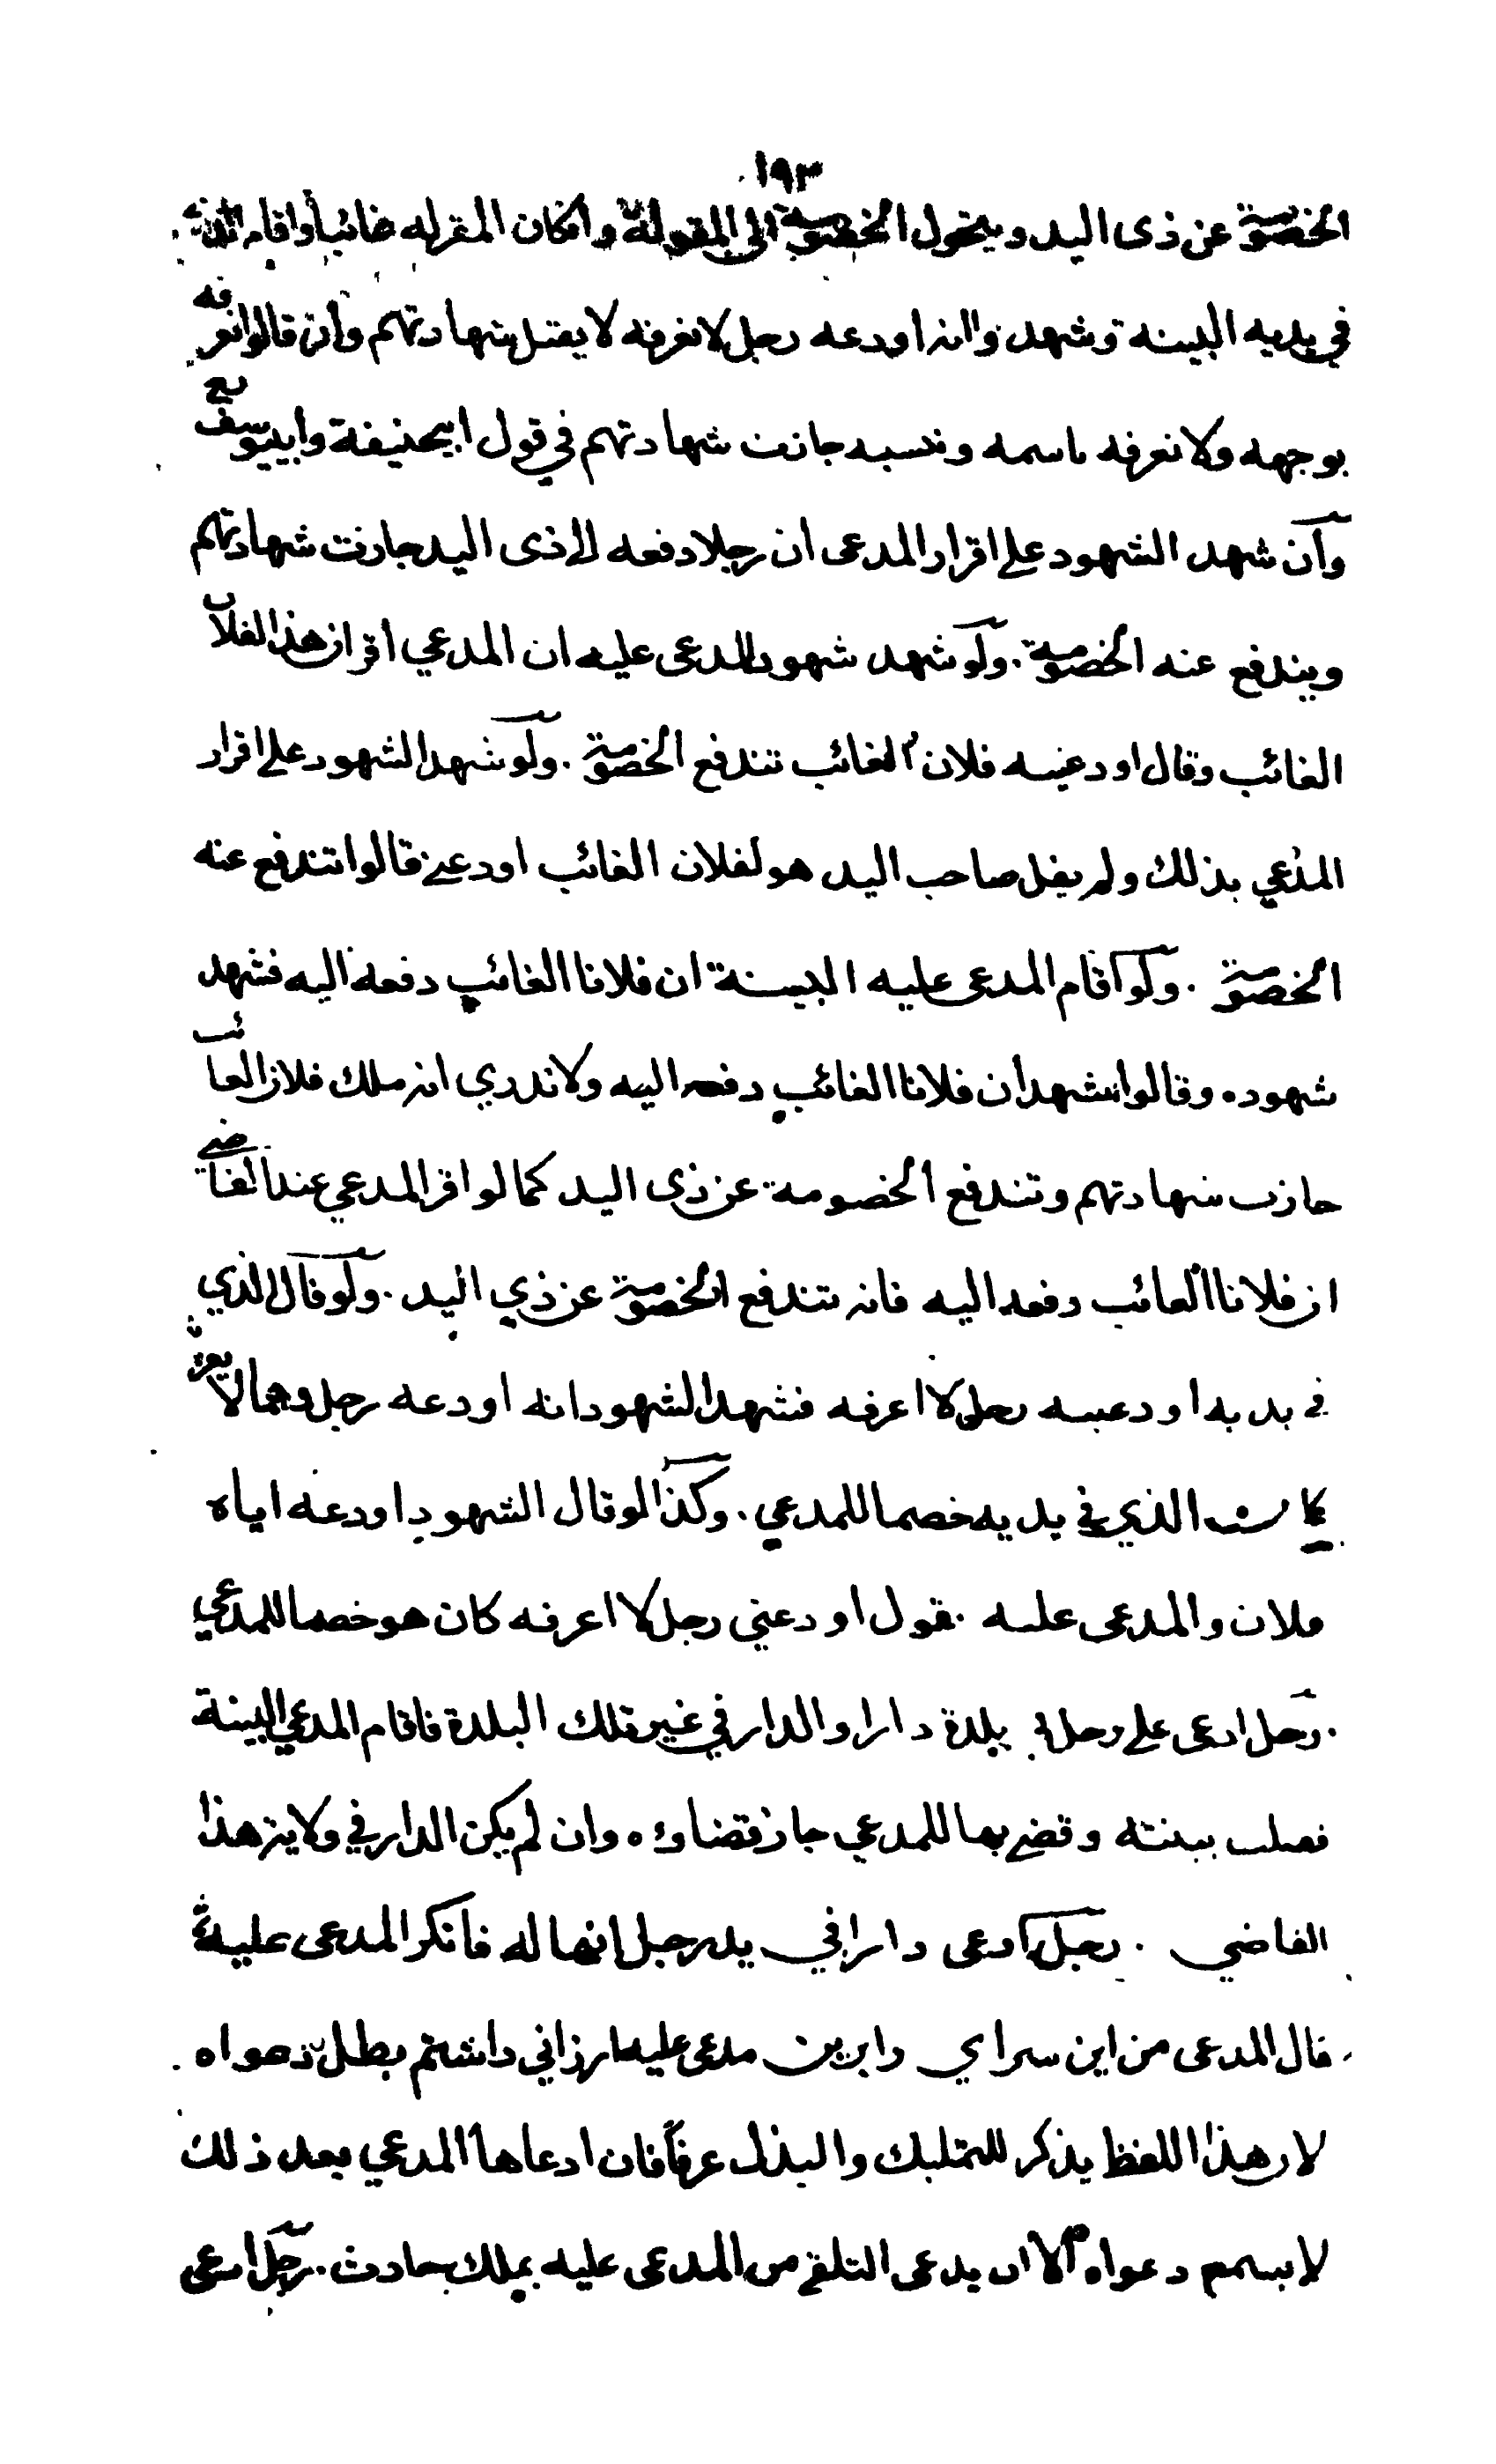 ١٩٣
الخصومة عن ذى اليد ويتحول الخصومة الى المقرله وان كان المقرله غائبا واقام الذى
في يديه البينة وشهدوا انه اودعه رجل لا نعرفه لا يقبل شهادتهم وان قالوا نعرفه
بوجهه ولا نعرفه باسمه ونسبه جازت شهادتهم في قول ابيحنيفة وابييوسف
وان شهد الشهود على اقرار المدعى ان رجلا دفعه الى ذى اليد جازت شهادتهم
ويندفع عنه الخصومة . ولو شهد شهود المدعى عليه ان المدعي اقر ان هذا لفلان
الغائب وقال اودعنيه فلان الغائب تندفع الخصومة . ولو شهد الشهود على اقرار
المدعي بذلك ولم يقل صاحب اليد هو لفلان الغائب اودعني قالوا تندفع عنه
الخصومة . ولو اقام المدعى عليه البينة ان فلانا الغائب دفعه اليه فشهد
شهوده وقالوا نشهد ان فلانا الغائب دفعه اليه ولا ندري انه ملك فلان الغائب
جازت شهادتهم وتندفع الخصومة عن ذى اليد كما لو اقر المدعي عند القاضي
ان فلانا الغائب دفعه اليه فانه تندفع الخصومة عن ذي اليد . ولو قال الذي
في يديه اودعنيه رجل لا اعرفه فشهد الشهود انه اودعه رجل وهما لا يعرفانه
كان الذي في يديه خصما للمدعي . وكذا لو قال الشهود اودعه اياه
فلان والمدعى عليه يقول اودعني رجل لا اعرفه كان هو خصما للمدعي
. رجل ادعى على رجل في بلدة دارا والدار في غير تلك البلدة فاقام المدعي البينة
فقبلت بينته وقضى بها للمدعي جاز قضاؤه وان لم يكن الدار في ولاية هذا
القاضي . رجل ادعى دارا في يد رجل انها له فانكر المدعى عليه
قال المدعى من اين سراي را برين مدعى عليه ارزاني داشتم بطل دعواه .
لان هذا اللفظ يذكر للتمليك والبذل عرفا فان ادعاها المدعي بعد ذلك
لا يسمع دعواه الا ان يدعى التلقي من المدعى عليه بملك حادث . رجل ادعى